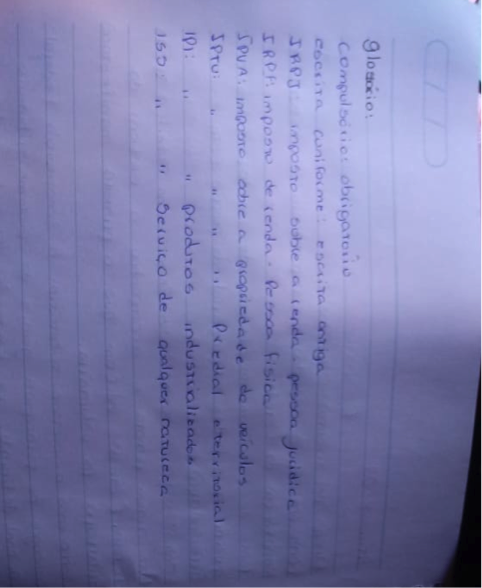 glosário:
Compulsório: obrigatório
escrita cuniforme: escrita antiga
IRPJ: imposto sobre a renda. pessoa jurídica
IRPF: imposto de renda. Pessoa física
IPVA: imposto sobre a propriedade de veículos
IPTU: " " " " Predial e territorial
IPI: " " produtos industrializados
ISS: " " Serviço de qualquer natureza